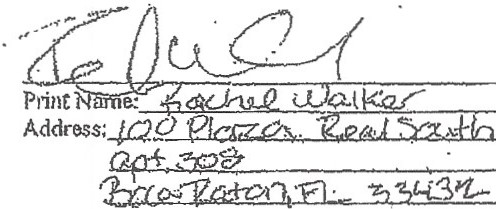 Print Name: Rachel Walker
Address: 100 Plaza Real South
apt 308
Boca Raton, Fl 33432